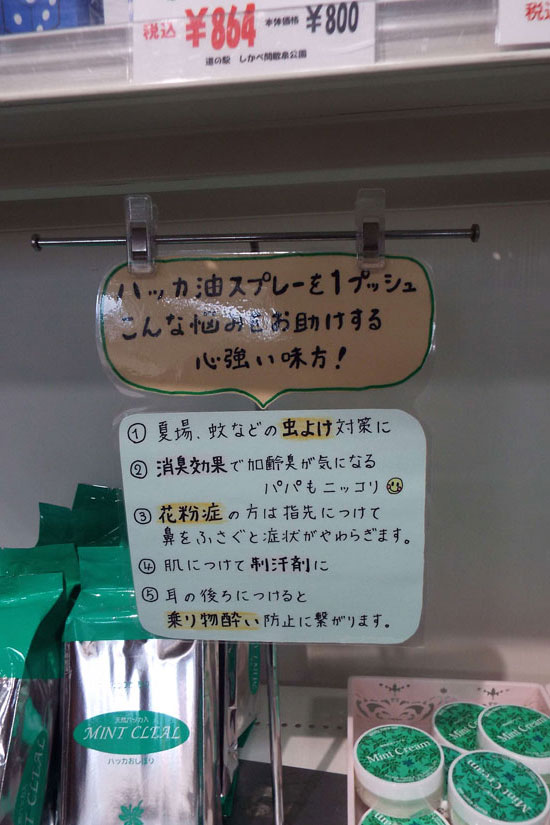 税込 ¥864 本体価格 ¥800
道の駅 しかべ間歇泉公園
税込
ハッカ油スプレーを1プッシュ
こんな悩みをお助けする
心強い味方!
① 夏場、蚊などの虫よけ対策に
② 消臭効果で加齢臭が気になる
パパもニッコリ
③ 花粉症の方は指先につけて
鼻をふさぐと症状がやわらぎます。
④ 肌につけて制汗剤に
⑤ 耳の後ろにつけると
乗り物酔い防止に繋がります。
天然ハッカ入
MINT CLEAL
ハッカおしぼり
Mint Cream
Mint Cream
Mint Cream